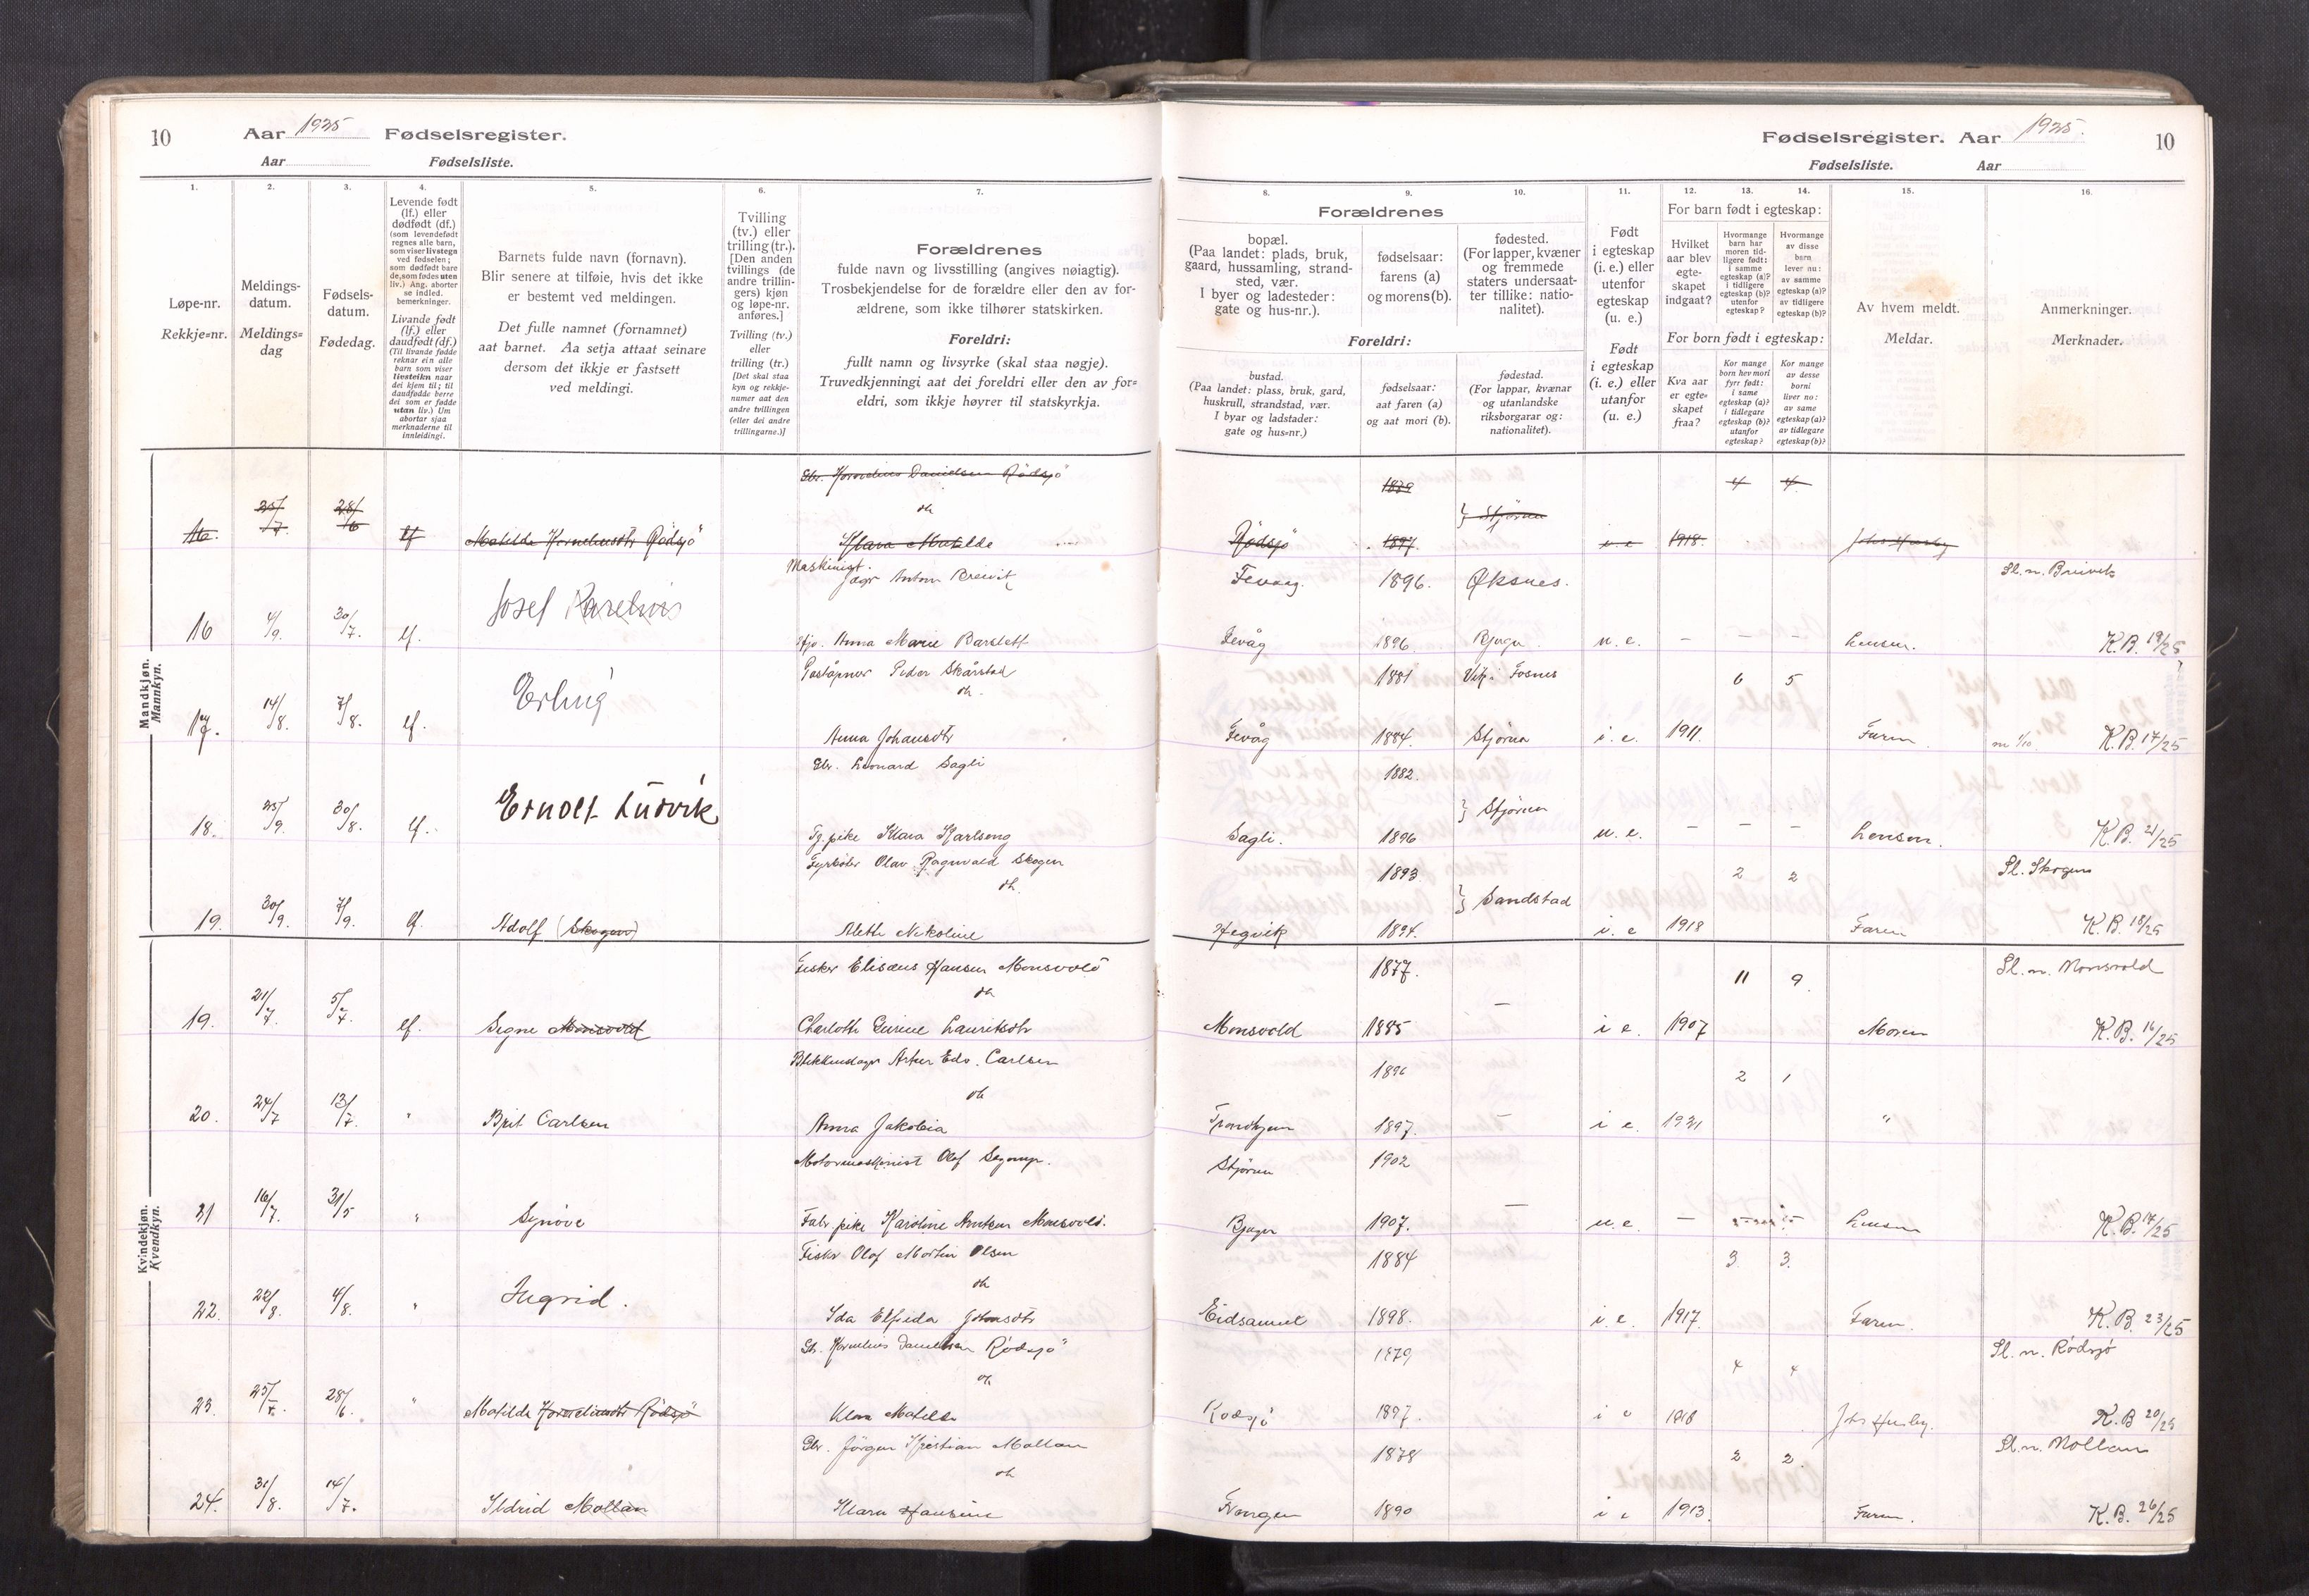 10 Aar 1925 Fødselsregister.
Aar Fødselsliste.
Fødselsregister. Aar 1925. 10
Fødselsliste. Aar
1. 2. 3. 4. 5. 6. 7.
Løpe-nr.
Rekkje=nr.
Meldings-
datum.
Meldings=
dag
Fødsels-
datum.
Fødedag.
Levende født
(lf.) eller
dødfødt (df.)
(som levendefødt
regnes alle barn,
som viser livstegn
ved fødselen;
som dødfødt bare
de, som fødes uten
liv.) Ang. aborter
se indled.
bemerkninger.
Livande født
(lf.) eller
daudfødt (df.)
(Til livande fødde
reknar ein alle
barn som viser
livsteikn naar
dei kjem til; til
daudfødde berre
dei som er fødde
utan liv.) Um
abortar sjaa
merknaderne til
innleidingi.
Barnets fulde navn (fornavn).
Blir senere at tilføie, hvis det ikke
er bestemt ved meldingen.
Det fulle namnet (fornamnet)
aat barnet. Aa setja attaat seinare
dersom det ikkje er fastsett
ved meldingi.
Tvilling
(tv.) eller
trilling (tr.).
[Den anden
tvillings (de
andre trillin-
gers) kjøn
og løpe-nr.
anføres.]
Tvilling (tv.)
eller
trilling (tr.)
[Det skal staa
kyn og rekkje-
numer aat den
andre tvillingen
(eller dei andre
trillingarne.)]
Forældrenes
fulde navn og livsstilling (angives nøiagtig).
Trosbekjendelse for de forældre eller den av for-
ældrene, som ikke tilhører statskirken.
Foreldri:
fullt namn og livsyrke (skal staa nøgje).
Truvedkjenningi aat dei foreldri eller den av for=
eldri, som ikkje høyrer til statskyrkja.
8. 9. 10. 11. 12. 13. 14. 15. 16.
Forældrenes
bopæl.
(Paa landet: plads, bruk,
gaard, hussamling, strand-
sted, vær.
I byer og ladesteder:
gate og hus-nr.).
fødselsaar:
farens (a)
og morens (b).
fødested.
(For lapper, kvæner
og fremmede
staters undersaat-
ter tillike: natio-
nalitet).
Foreldri:
bustad.
(Paa landet: plass, bruk, gard,
huskrull, strandstad, vær.
I byar og ladstader:
gate og hus=nr.)
fødselsaar:
aat faren (a)
og aat mori (b).
fødestad.
(For lappar, kvænar
og utanlandske
riksborgarar og:
nationalitet).
Født
i egteskap
(i. e.) eller
utenfor
egteskap
(u. e.)
Født
i egteskap
(i. e.) eller
utanfor
(u. e.)
For barn født i egteskap:
Hvilket
aar blev
egte-
skapet
indgaat?
Hvormange
barn har
moren tid-
ligere født:
i samme
egteskap (a)?
i tidligere
egteskap (b)?
utenfor
egteskap?
Hvormange
av disse
barn
lever nu:
av samme
egteskap (a)?
av tidligere
egteskap (b)?
For born født i egteskap:
Kva aar
er egte-
skapet
fraa?
Kor mange
born hev mori
fyrr født:
i same
egteskap (a)?
i tidlegare
egteskap (b)?
utanfor
egteskap?
Kor mange
av desse
borni
liver no:
av same
egteskap (a)?
av tidlegare
egteskap (b)?
Av hvem meldt.
Meldar.
Anmerkninger.
Merknader.
Mandkjøn.
Mannkyn.
Gbr. Kornelius Danielsen Rødsjö 1879 4 4
oh Stjørna
16. 25/7. 28/6 lf Matilda Korneliusdtr Rødsjö Klara Matilde Rødsjö 1897. i. e 1918.
Maskinist. Fevaag. 1896. Øksnes. Sl. n. Breivik
16 4/9. 30/7. lf. Josef Anna Marie Fevåg 1896. Bjugn u. e. – – – Lensm. K.B. 19/25
Poståpner Peder Skårstad 1881 Vik i Fosnes 6 5
oh.
17. 14/8. 7/8. lf. Erling Anna Johansdtr Fevåg 1884. Stjørna i. e. 1911. Faren K.B. 17/25
Gbr. Leonard Sagli 1882.
Stjørna
18. 25/9. 30/8. lf. Ernolf Ludvik Tj.pike Klara Sagli. 1896 u. e. – – – Lensm. K.B. 21/25
Olav Ragnvald Skogen 1893 2 2 Sl. Skogen
oh. Sandstad
19. 30/9. 7/9. lf. Adolf (Skogen) Aleth Nikoline Hegvik 1894. i. e 1918 Faren K.B. 18/25
Kvindekjøn.
Kvendkyn.
Fisker Elisæus Hansen Monsvold 1877. 11 9. Sl. n. Monsvold
oh
19. 21/7. 5/7. lf. Signe Monsvold Lauritsdtr Monsvold 1885 i e. 1907 Moren K.B. 16/25
Blikkenslager Artur Edv. Carlsen 1896 2 1
oh
20. 24/7 13/7. " Brit Carlsen Anna Jakobia Trondhjem 1897. – i e. 1921 "
Motormaskinist Olaf Stjørna 1902
21 16/7. 31/5 " Synöve Fabr.pike Karoline Monsvold. Bjugn 1907. – u. e. – Lensm K.B. 17/25
Fisker Olaf Martin Olsen 1884 3 3.
oh
22. 22/8. 4/8. " Ingrid. Ida Elfrida Johnsdtr Eidsaunet 1898. i. e. 1917. Faren. K.B. 23/25
Gbr. Kornelius Danielsen Rødsjö 1879 4 4 Sl. n. Rødsjö
oh
23. 25/7. 28/6. " Matilda Korneliusdtr Rødsjö Klara Matilde Rødsjö 1897. i e 1918 K.B 20/25
Gbr. Jörgen Kristian Mollan 1878 2 2. Sl. n. Mollan
oh
24. 31/8. 14/7. Ildrid Mollan Klara Hansine 1890 i e 1913. Faren. K.B. 26/25